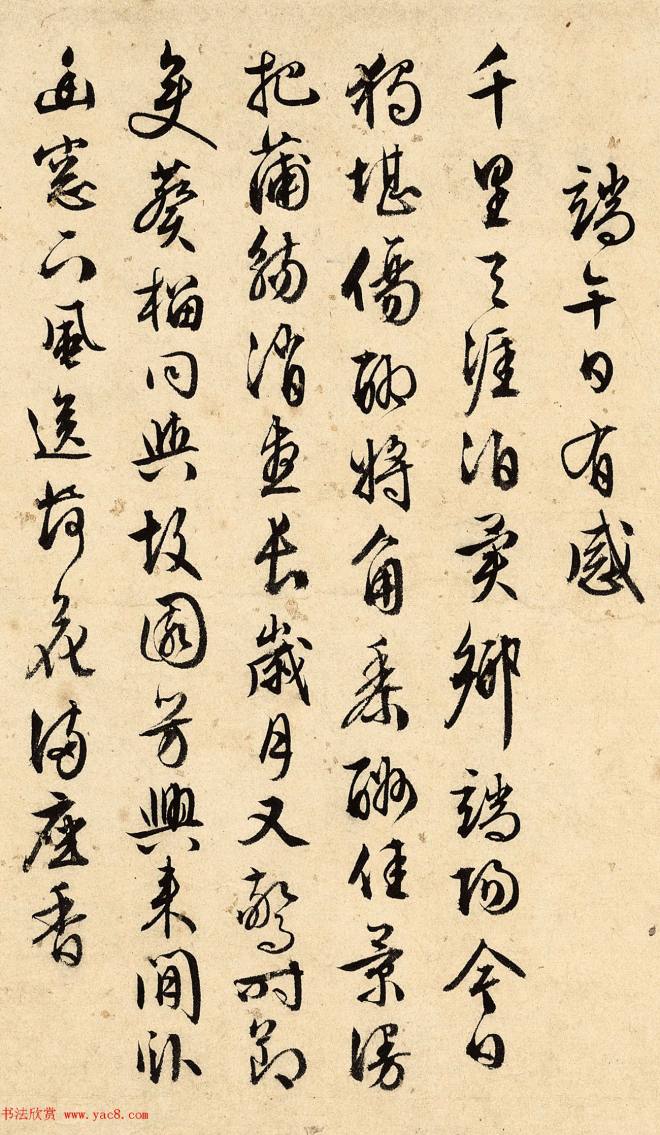 端午日有感
千里天涯泊異鄉端陽今日
獨堪傷聊將角黍酬佳景漫
把蒲觴消晝長歲月又驚時節
變葵榴同與故園芳興來閒臥
幽窓下風送荷花滿座香
书法欣赏 www.yac8.com